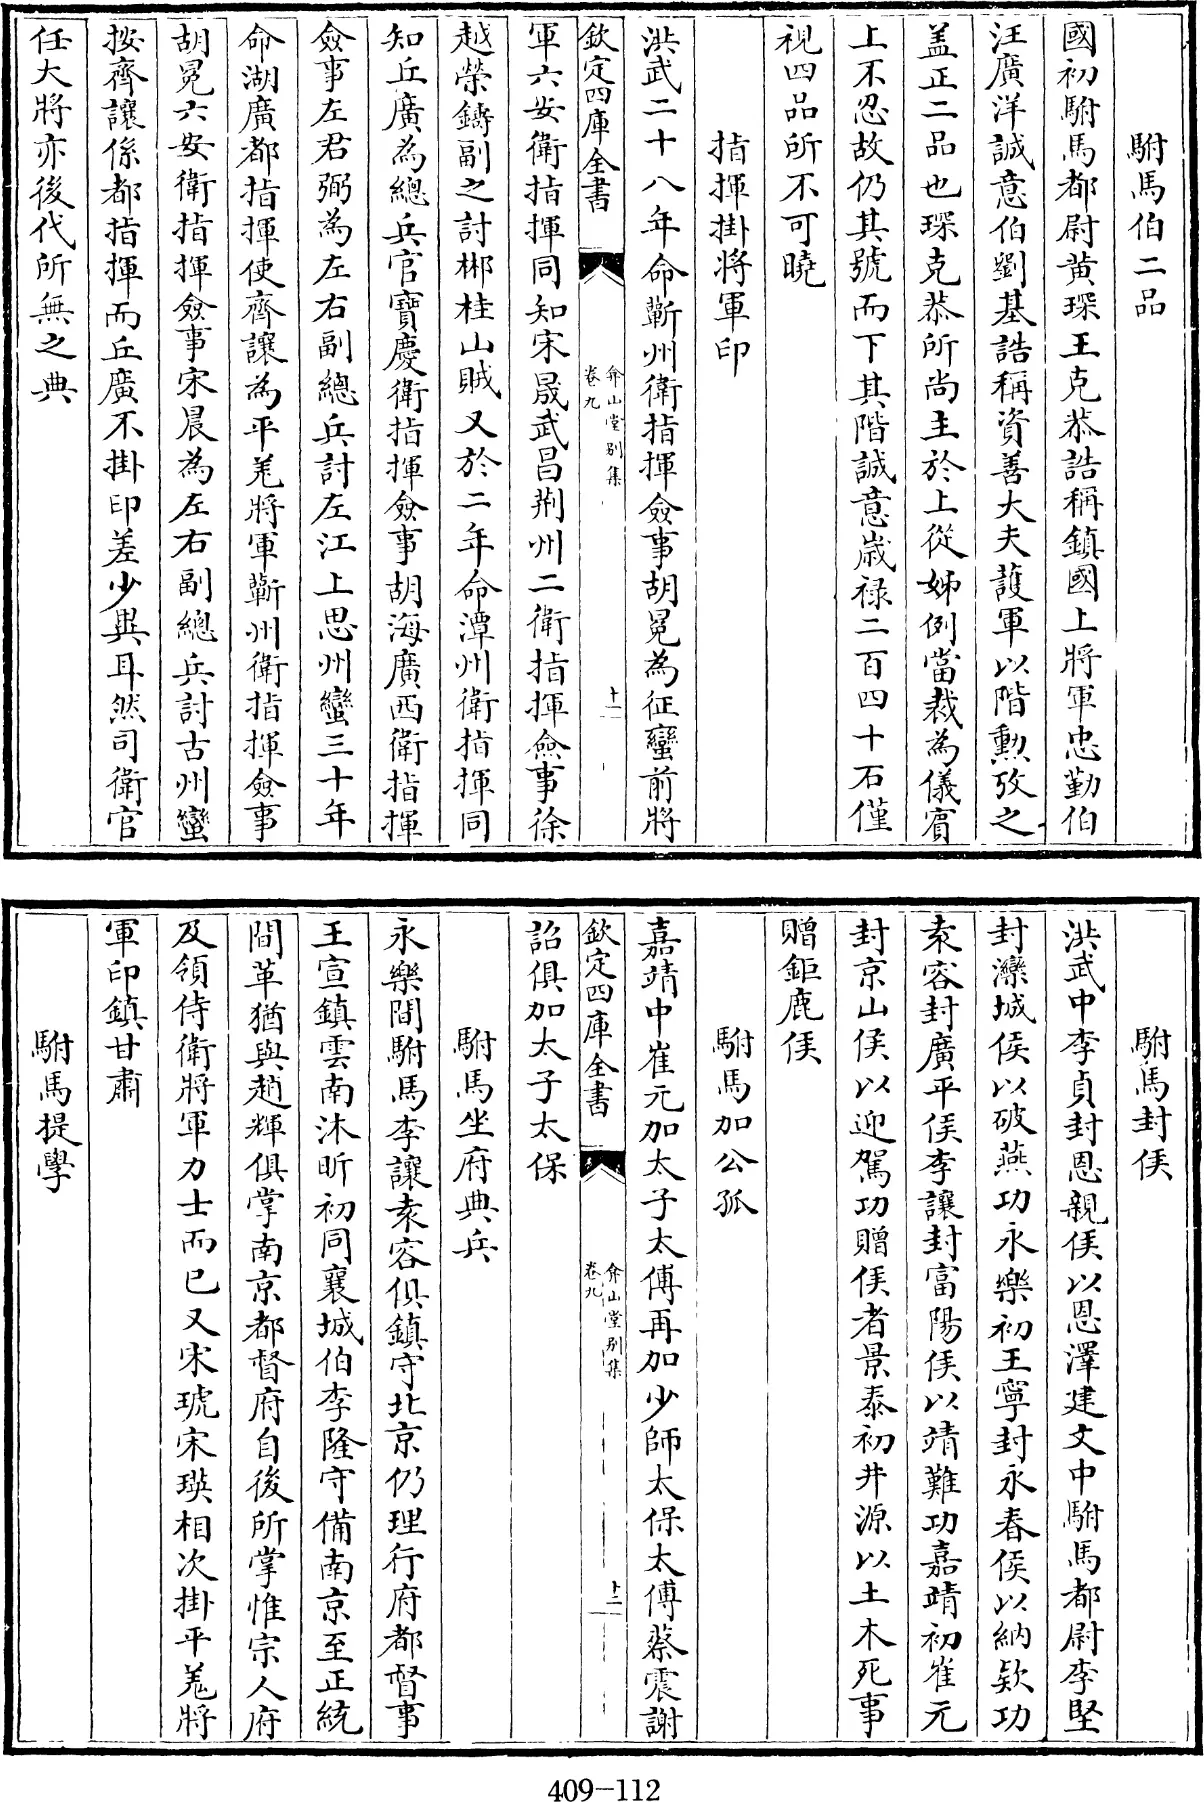 駙馬伯二品
國初駙馬都尉黄琛王克恭誥稱鎮國上將軍忠勤伯
汪廣洋誠意伯劉基誥稱資善大夫護軍以階勲攷之
盖正二品也琛克恭所尚主於上從姊例當裁為儀賓
上不忍故仍其號而下其階誠意歳禄二百四十石僅
視四品所不可曉
指揮掛將軍印
洪武二十八年命蘄州衛指揮僉事胡冕為征蠻前將
欽定四庫全書
弇山堂别集
卷九
十一
軍六安衛指揮同知宋晟武昌荆州二衛指揮僉事徐
越榮鑄副之討郴桂山賊又於二年命潭州衛指揮同
知丘廣為總兵官寶慶衛指揮僉事胡海廣西衛指揮
僉事左君弼為左右副總兵討左江上思州蠻三十年
命湖廣都指揮使齊讓為平羌將軍蘄州衛指揮僉事
胡冕六安衛指揮僉事宋晨為左右副總兵討古州蠻
按齊讓係都指揮而丘廣不掛印差少異耳然司衛官
任大將亦後代所無之典
駙馬封侯
洪武中李貞封恩親侯以恩澤建文中駙馬都尉李堅
封灤城侯以破燕功永樂初王寧封永春侯以納欵功
袁容封廣平侯李讓封富陽侯以靖難功嘉靖初崔元
封京山侯以迎駕功贈侯者景泰初井源以土木死事
贈鉅鹿侯
駙馬加公孤
嘉靖中崔元加太子太傅再加少師太保太傅蔡震謝
欽定四庫全書
弇山堂别集
卷九
十二
詔俱加太子太保
駙馬坐府典兵
永樂間駙馬李讓袁容俱鎮守北京仍理行府都督事
王宣鎮雲南沐昕初同襄城伯李隆守備南京至正統
間革猶與趙輝俱掌南京都督府自後所掌惟宗人府
及領侍衛將軍力士而已又宋琥宋瑛相次掛平羌將
軍印鎮甘肅
駙馬提學
409-112